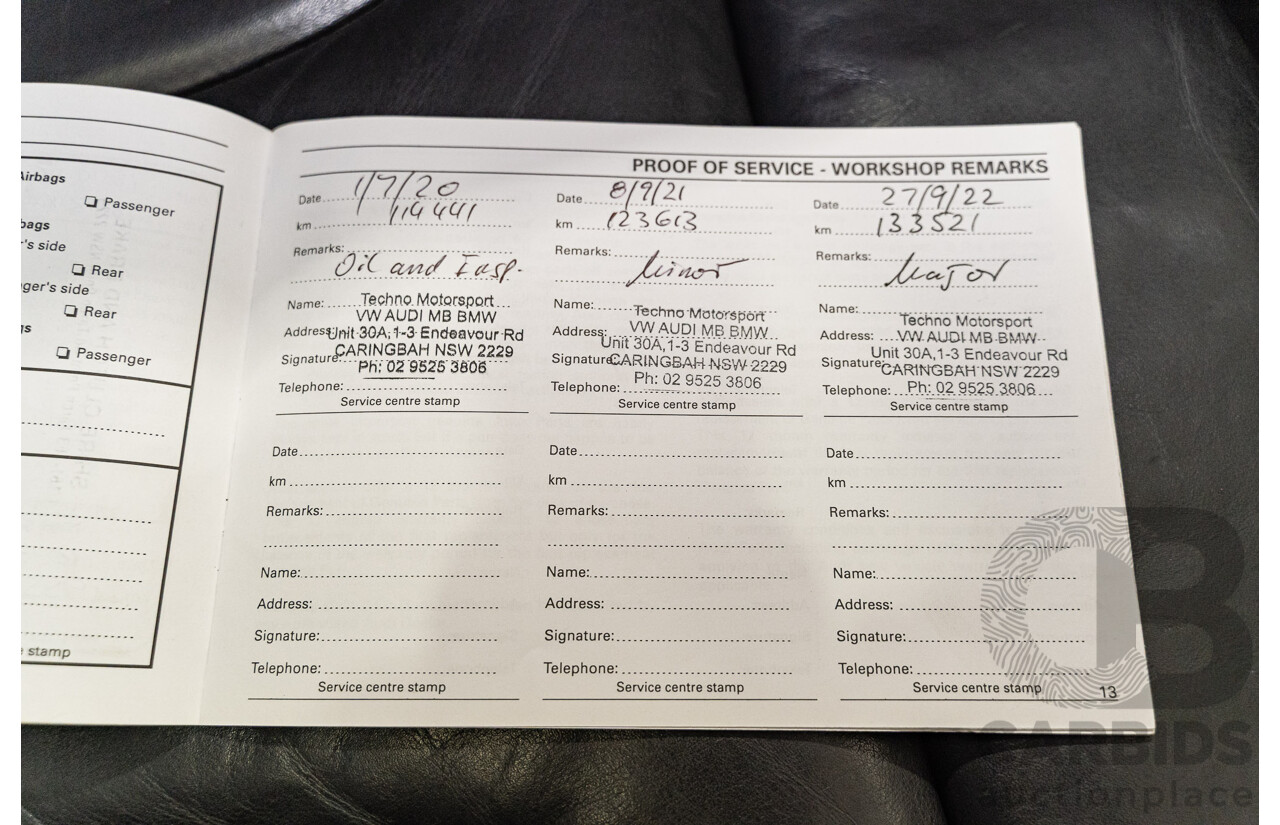 Airbags
Passenger
bags
's side
Rear
ger's side
Rear
gs
Passenger
stamp
PROOF OF SERVICE - WORKSHOP REMARKS
Date 1/7/20
km 114441
Remarks:
Oil and Insp.
Name: Techno Motorsport
VW AUDI MB BMW
Address: Unit 30A,1-3 Endeavour Rd
Signature: CARINGBAH NSW 2229
Ph: 02 9525 3806
Telephone:
Service centre stamp
Date 8/9/21
km 123613
Remarks:
Minor
Name: Techno Motorsport
Address: VW AUDI MB BMW
Unit 30A,1-3 Endeavour Rd
Signature: CARINGBAH NSW 2229
Telephone: Ph: 02 9525 3806
Service centre stamp
Date 27/9/22
km 133521
Remarks:
Major
Name:
Techno Motorsport
Address: VW AUDI MB BMW
Unit 30A,1-3 Endeavour Rd
Signature: CARINGBAH NSW 2229
Telephone: Ph: 02 9525 3806
Service centre stamp
Date
km
Remarks:
Name:
Address:
Signature:
Telephone:
Service centre stamp
Date
km
Remarks:
Name:
Address:
Signature:
Telephone:
Service centre stamp
Date
km
Remarks:
Name:
Address:
Signature:
Telephone:
Service centre stamp
13
CB
CARBIDS
auctionplace